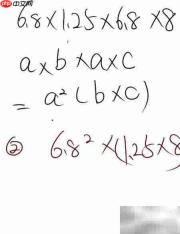 6.8×1.25×6.8×8
a×b×a×c
=a²(b×c)
② 6.8²×(1.25×8)